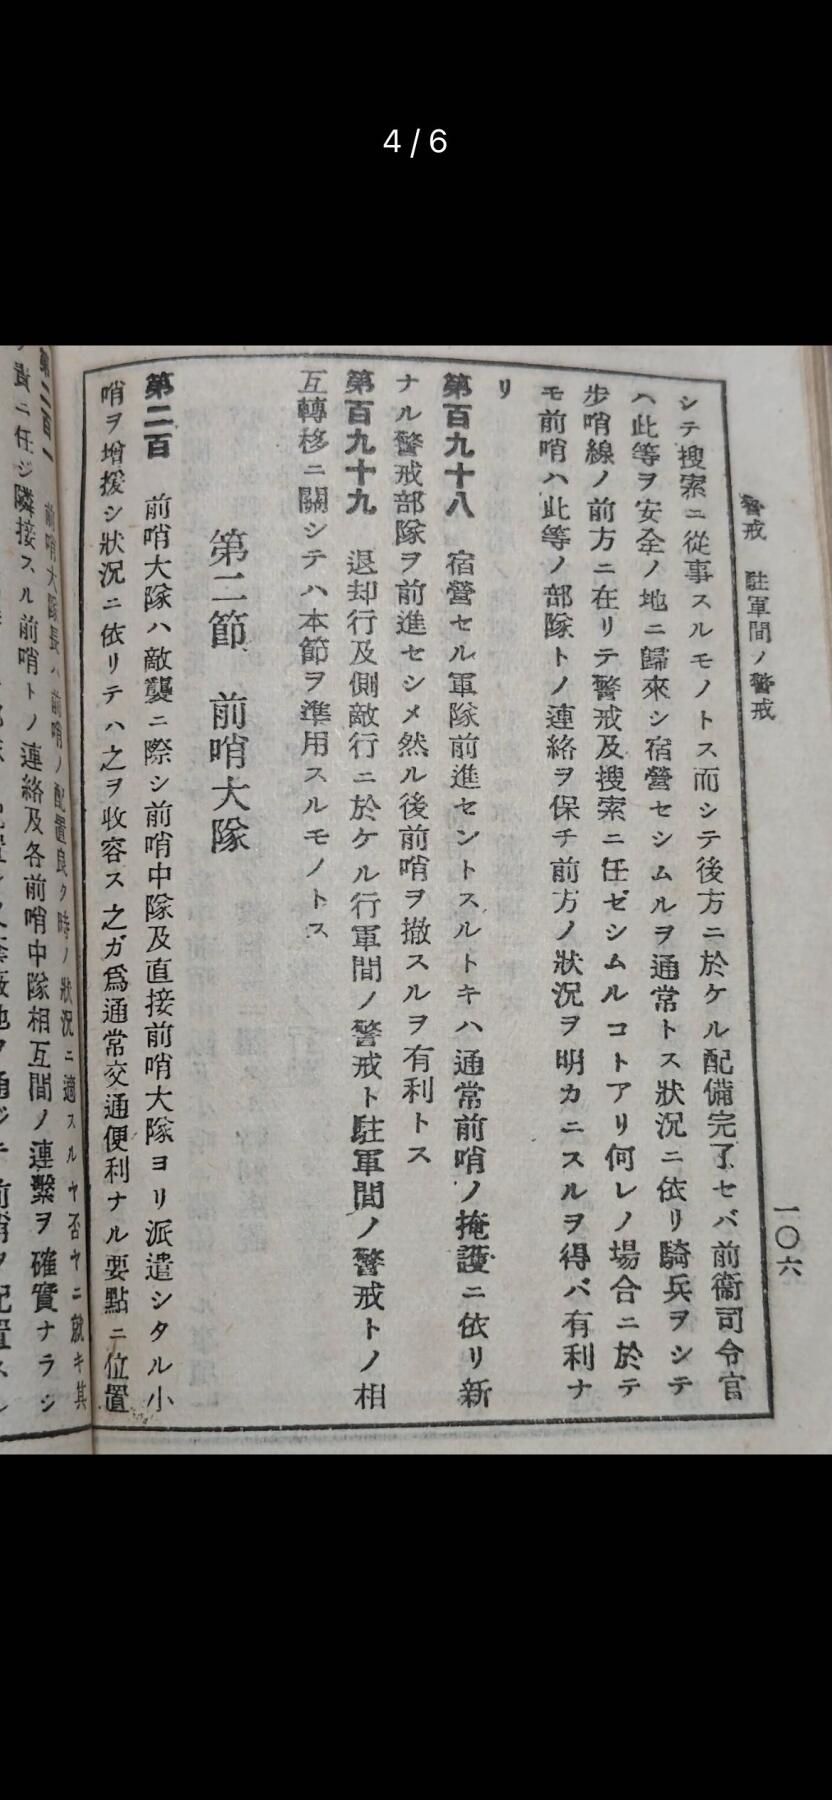 4 / 6
警戒 駐軍間ノ警戒
一〇六
シテ搜索ニ從事スルモノトス而シテ後方ニ於ケル配備完了セバ前衞司令官
ハ此等ヲ安全ノ地ニ歸來シ宿營セシムルヲ通常トス狀況ニ依リ騎兵ヲシテ
步哨線ノ前方ニ在リテ警戒及搜索ニ任ゼシムルコトアリ何レノ場合ニ於テ
モ前哨ハ此等ノ部隊トノ連絡ヲ保チ前方ノ狀況ヲ明カニスルヲ得バ有利ナ
リ
第百九十八 宿營セル軍隊前進セントスルトキハ通常前哨ノ掩護ニ依リ新
ナル警戒部隊ヲ前進セシメ然ル後前哨ヲ撤スルヲ有利トス
第百九十九 退却行及側敵行ニ於ケル行軍間ノ警戒ト駐軍間ノ警戒トノ相
互轉移ニ關シテハ本節ヲ準用スルモノトス
第二節 前哨大隊
第二百 前哨大隊ハ敵襲ニ際シ前哨中隊及直接前哨大隊ヨリ派遣シタル小
哨ヲ增援シ狀況ニ依リテハ之ヲ收容ス之ガ爲通常交通便利ナル要點ニ位置
第二百一 前哨大隊長ハ前哨ノ配置良ク時ノ狀況ニ適スルヤ否ヤニ就キ其
責ニ任ジ隣接スル前哨トノ連絡及各前哨中隊相互間ノ連繫ヲ確實ナラシ